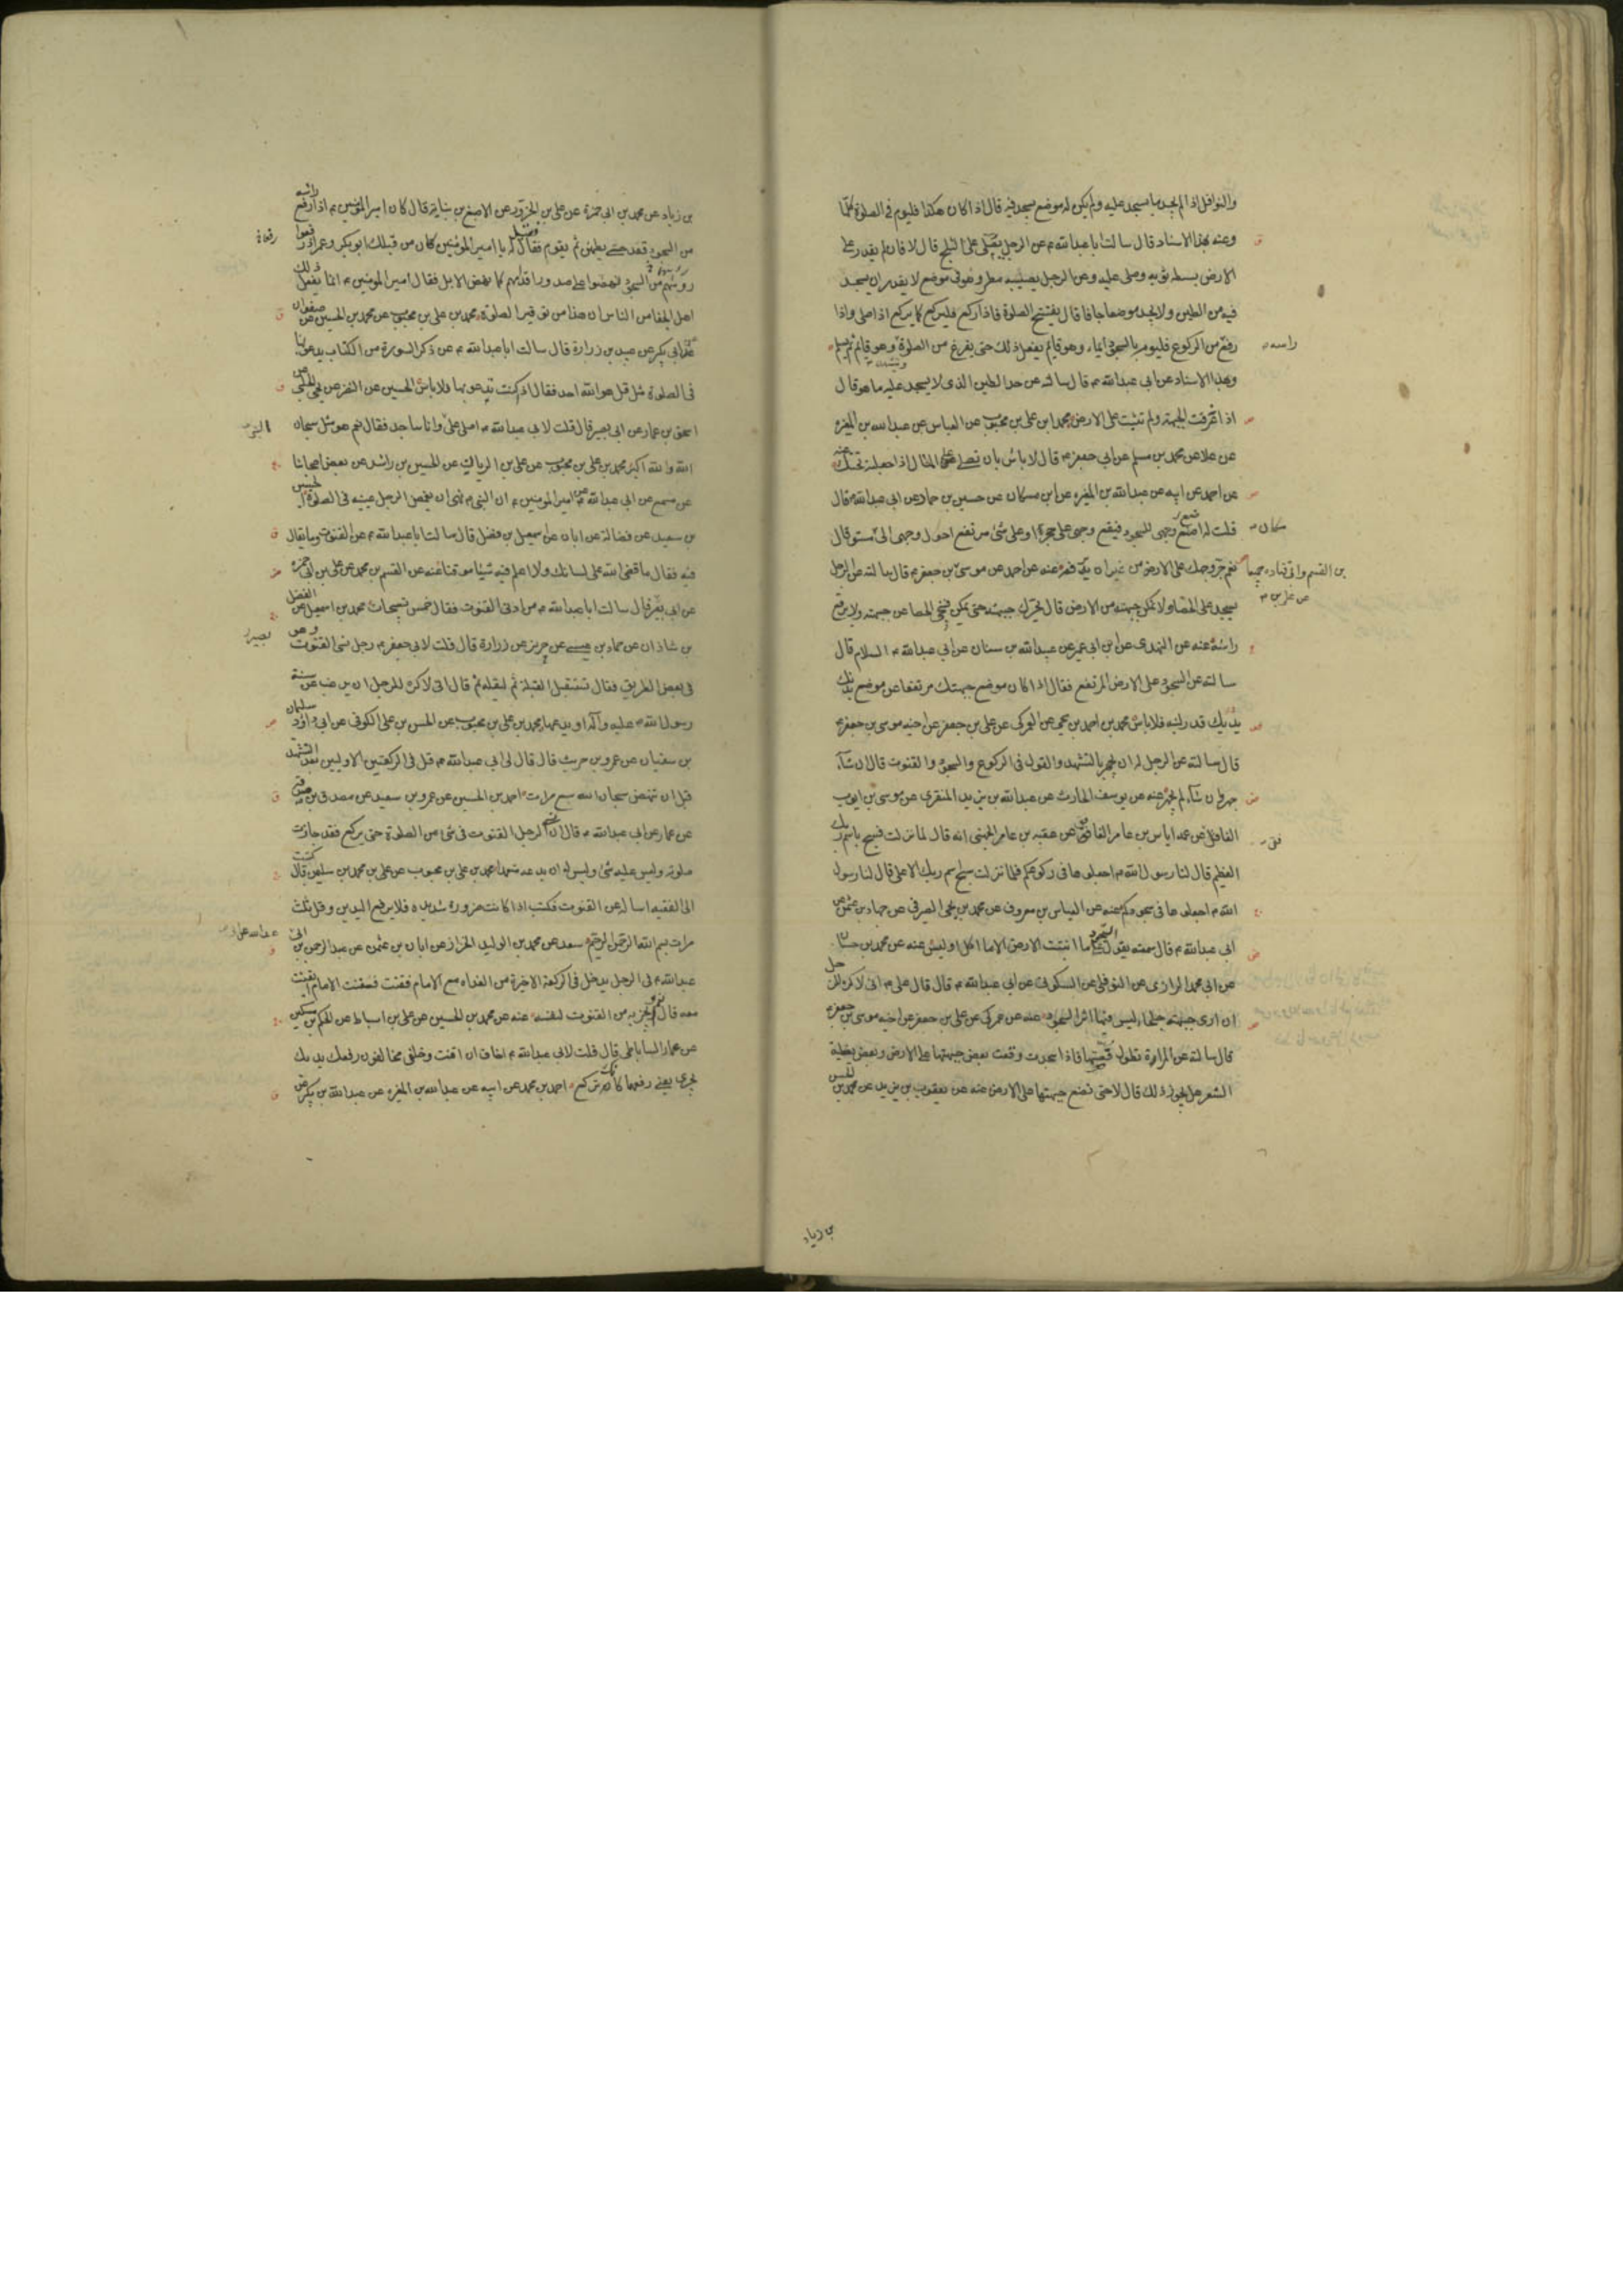 والنوافل اذا لم يجد ما يسجد عليه ولم يكن له موضع يسجد فيه قال اذا كان هكذا فليوم في الصلوة كلها
وعنه بهذا الاسناد قال سالت ابا عبدالله م عن الرجل يصلى على الثلج قال لا فان لم يقدر على
الارض بسط ثوبه وصلى عليه وعن الرجل يصيبه مطر وهو في موضع لا يقدر ان يسجد
فيه من الطين ولا يجد موضعا جافا قال يفتتح الصلوة فاذا ركع فليركع كما يركع اذا صلى واذا
رفع من الركوع فليوم بالسجود ايماء وهو قايم يفعل ذلك حتى يفرغ من الصلوة ويتشهد وهو قايم ثم يسلم
راسه
وبهذا الاسناد عن ابي عبدالله م قال سالته عن حد الطين الذى لا يسجد عليه ما هو قال
اذا غرقت الجبهة ولم تثبت على الارض محمد بن على بن محبوب عن العباس عن عبدالله بن المغيره
عن علا عن محمد بن مسلم عن ابي جعفر م قال لا باس بان تصلى على المثال اذا جعلته تحتك عنه
عن احمد عن ابيه عن عبدالله بن المغيره عن ابن مسكان عن حسين بن حماد عن ابي عبدالله م قال
قلت له اضع وجهى للسجود فيقع وجهى على حجر او على شئ مرتفع احول وجهى الى مستو قال
نعم جر وجهك على الارض من غير ان ترفعه عنه عن احمد عن موسى بن القسم وابي قتاده جميعا عن على بن جعفر م قال سالته عن الرجل
يسجد على الحصا ولا يمكن جبهته من الارض قال يحرك جبهته حتى يمكن فينحى الحصا عن جبهته ولا يرفع
راسه عنه عن النهدى عن ابن ابي عمير عن عبدالله بن سنان عن ابي عبدالله م السلام قال
سالته عن السجود على الارض المرتفع فقال اذا كان موضع جبهتك مرتفعا عن موضع بدنك
قدر لبنه فلا باس محمد بن احمد بن يحيى عن العمركى عن على بن جعفر عن اخيه موسى بن جعفر م
قال سالته عن الرجل له ان يجهر بالتشهد والقول في الركوع والسجود والقنوت قال ان شآء
جهر وان شآء لم يجهر عنه عن يوسف الحارث عن عبدالله بن يزيد المنقرى عن موسى بن ايوب
الغافقى عن عمه اياس بن عامر الغافقى عن عقبه بن عامر الجهنى انه قال لما نزلت فسبح باسم ربك
العظيم قال لنا رسول الله م اجعلوها في ركوعكم فلما نزلت سبح اسم ربك الاعلى قال لنا رسول
الله م اجعلوها في سجودكم عنه عن العباس بن معروف عن محمد بن يحيى الصيرفى عن حماد بن عثمن عن
ابي عبدالله م قال سمعته يقول السجود على ما انبتت الارض الا ما اكل او لبس عنه عن محمد بن حسان
عن ابي محمد الرازى عن النوفلى عن السكونى عن ابي عبدالله م قال قال على م اني لاكره للرجل
ان ارى جبهته جلحاء ليس فيها اثر السجود عنه عن عمركى عن على بن جعفر عن اخيه موسى بن جعفر م
قال سالته عن المراة تطول قصتها فاذا سجدت وقعت بعض جبهتها على الارض وبعض يغطيه
الشعر هل يجوز ذلك قال لا حتى تضع جبهتها على الارض عنه عن يعقوب بن يزيد عن محمد بن الحسن
بن زياد
بن زياد عن محمد بن ابي حمزة عن على بن الحزور عن الاصبغ بن نباته قال كان امير المؤمنين م اذا رفع راسه
من السجود قعد حتى يطمئن ثم يقوم فقيل له يا امير المؤمنين كان من قبلك ابو بكر وعمر اذا رفعوا
رؤسهم من السجود نهضوا على صدور اقدامهم كما تنهض الابل فقال امير المؤمنين م انما يفعل ذلك
اهل الجفا من الناس ان هذا من توقير الصلوة محمد بن على بن محبوب عن محمد بن الحسين عن صفوان
عن ابن بكير عن عبيد بن زرارة قال سالت ابا عبدالله م عن ذكر السورة من الكتاب يدعو بها
في الصلوة مثل قل هو الله احد فقال اذا كنت تدعو بها فلا باس الحسين عن النضر عن يحيى الحلبى
اسحق بن عمار عن ابي بصير قال قلت لابي عبدالله م اصلى على النبى وانا ساجد فقال نعم هو مثل سبحان
الله والله اكبر محمد بن على بن محبوب عن على بن الريان عن الحسين بن راشد عن بعض اصحابنا
عن مسمع عن ابي عبدالله عن امير المومنين م ان النبي م نهى ان يغمض الرجل عينيه في الصلوة الحسين
بن سعيد عن فضالة عن ابان عن اسمعيل بن فضل قال سالت ابا عبدالله م عن القنوت وما يقال
فيه فقال ما قضى الله على لسانك ولا اعلم فيه شيئا موقتا عنه عن القسم بن محمد عن على بن ابي حمزه
عن ابي بصير قال سالت ابا عبدالله م عن ادنى القنوت فقال خمس تسبيحات محمد بن اسمعيل عن الفضل
بن شاذان عن حماد بن عيسى عن حريز عن زرارة قال قلت لابي جعفر م رجل نسى القنوت وهو
في بعض الطريق فقال تستقبل القبلة ثم ليقله ثم قال انى لاكره للرجل ان يرغب عن سنة
رسول الله م عليه وآله او يدعها محمد بن على بن محبوب عن الحسن بن على الكوفى عن ابي داود سليمان
بن سفيان عن عمرو بن حريث قال قال لى ابي عبدالله م قل في الركعتين الاوليين بعد التشهد
قبل ان تنهض سبحان الله سبع مرات احمد بن الحسين عن عمرو بن سعيد عن مصدق بن صدقه
عن عمار عن ابي عبدالله م قال ان نسى الرجل القنوت في شئ من الصلوة حتى يركع فقد جازت
صلوته وليس عليه شئ وليس له ان يدعه متعمدا محمد بن على بن محبوب عن على بن محمد بن سليمن قال كتبت
الى الفقيه اساله عن القنوت فكتب اذا كانت ضرورة شديده فلا يرفع اليدين وقل ثلث
مرات بسم الله الرحمن الرحيم سعد عن محمد بن الوليد الخزاز عن ابان بن عثمن عن عبد الرحمن بن ابي
عبدالله م في الرجل يدخل في الركعة الاخيرة من الغداه مع الامام فقنت الامام ايقنت
معه قال نعم يجزيه من القنوت لنفسه عنه عن محمد بن الحسين عن على بن اسباط عن الحكم بن مسكين
عن عمار الساباطى قال قلت لابي عبدالله م اخاف ان اقنت وخلفى مخالفون رفعك يديك
يجزى يعنى رفعهما كانك تركع احمد بن محمد عن ابيه عن عبدالله بن المغيره عن عبدالله بن بكير عن